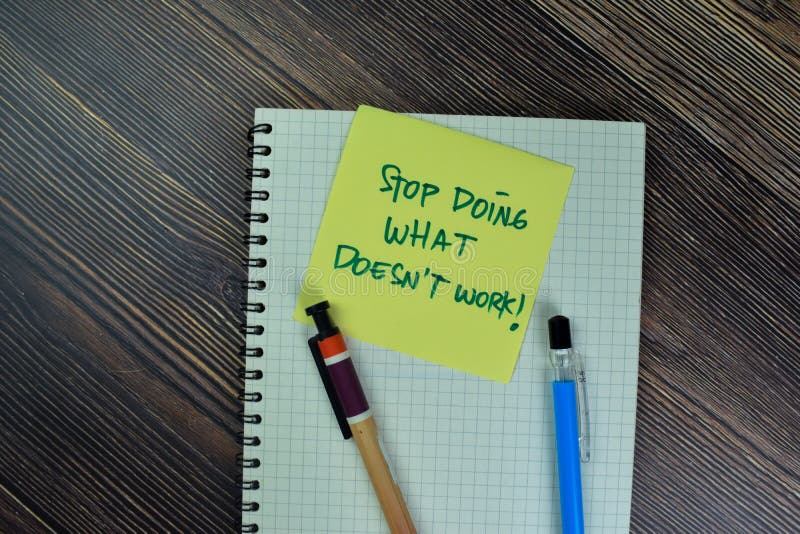 STOP DOING
WHAT
DOESN'T WORK!
dreamstime